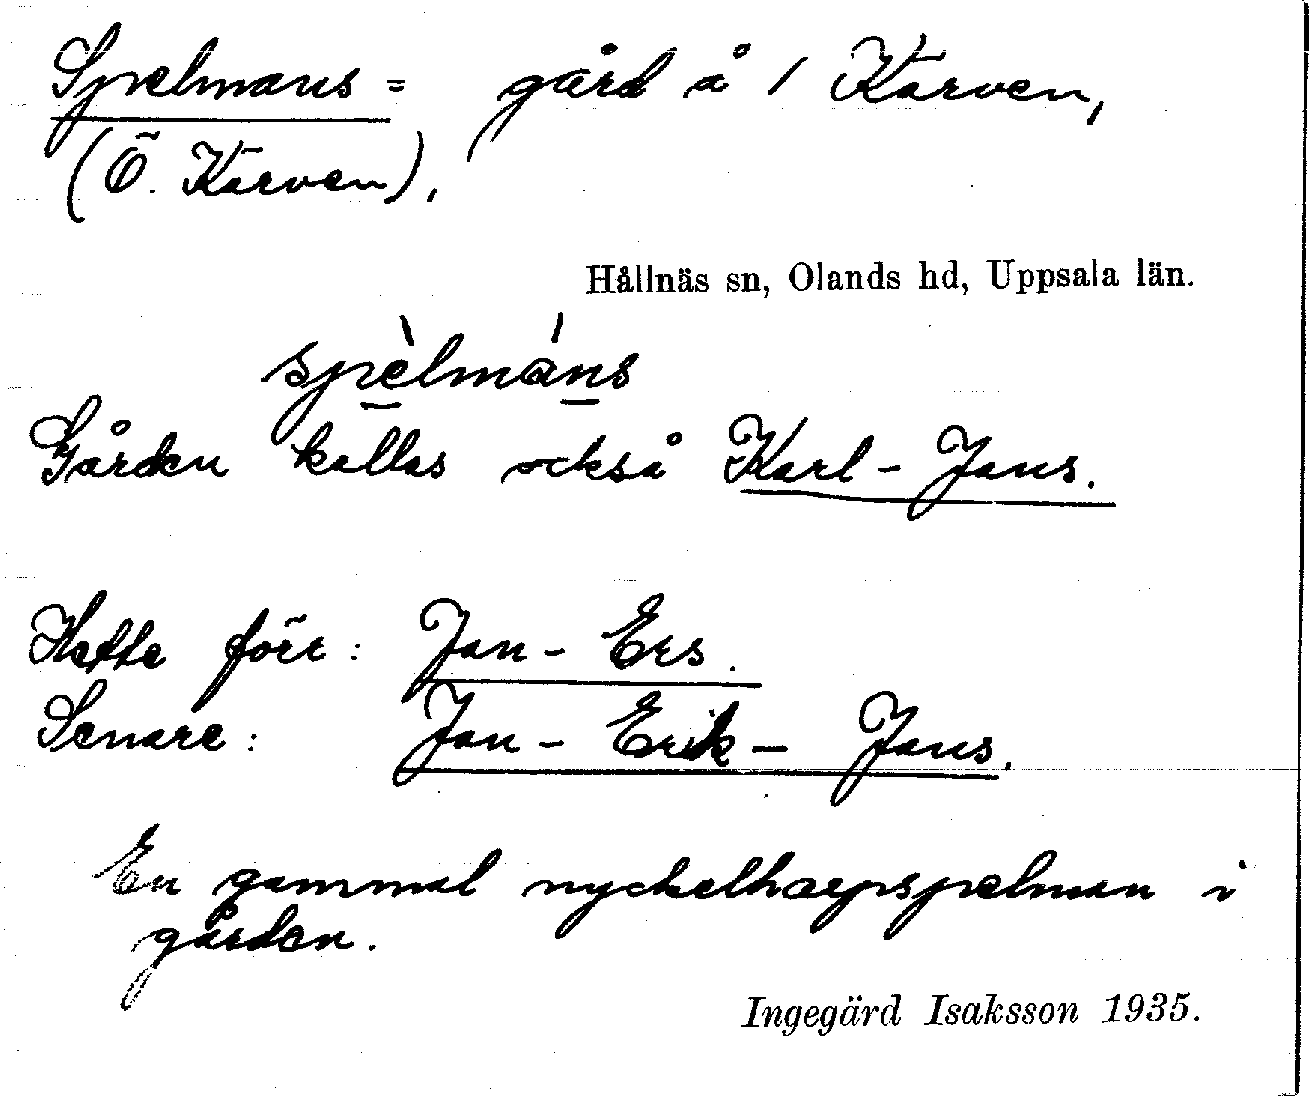 Spelmans = gård å 1 Kärven,
(Ö. Kärven),
Hållnäs sn, Olands hd, Uppsala län.
spèlmáns
Gården kallas också Karl-Jans.
Hette förr: Jan-Ers.
Senare: Jan-Erik-Jans.
En gammal nyckelharpspelman i
gården.
Ingegärd Isaksson 1935.